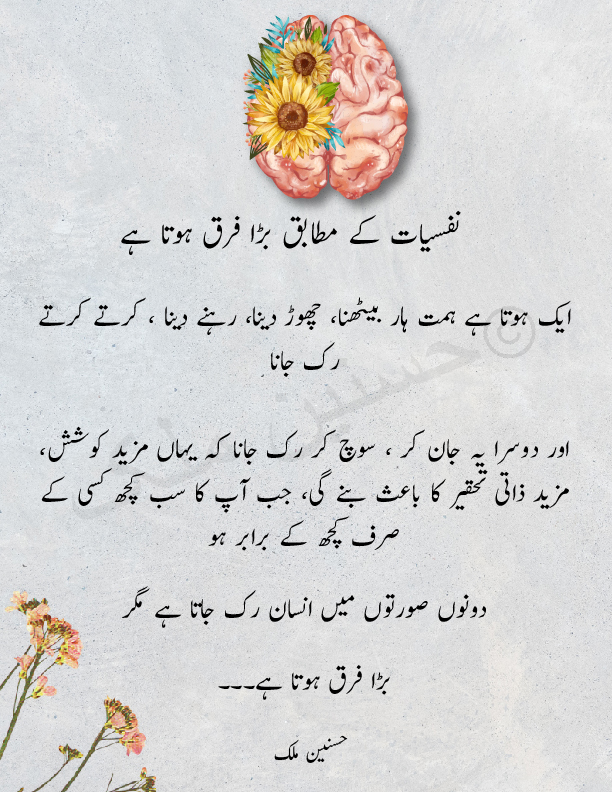 نفسیات کے مطابق بڑا فرق ہوتا ہے
ایک ہوتا ہے ہمت ہار بیٹھنا، چھوڑ دینا، رہنے دینا ، کرتے کرتے
رک جانا
اور دوسرا یہ جان کر ، سوچ کر رک جانا کہ یہاں مزید کوشش،
مزید ذاتی تحقیر کا باعث بنے گی، جب آپ کا سب کچھ کسی کے
صرف کچھ کے برابر ہو
دونوں صورتوں میں انسان رک جاتا ہے مگر
بڑا فرق ہوتا ہے۔۔۔
حسنین ملک
©حسنین ملک